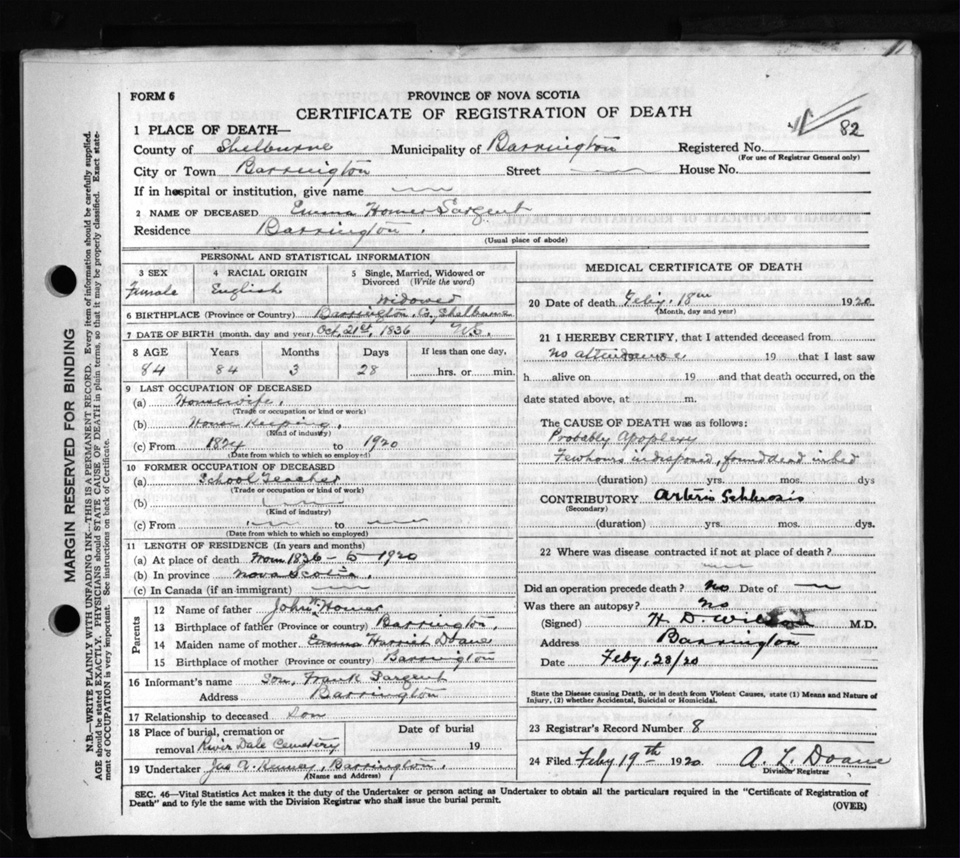 FORM 6
PROVINCE OF NOVA SCOTIA
CERTIFICATE OF REGISTRATION OF DEATH
82
1 PLACE OF DEATH—
County of Shelburne Municipality of Barrington Registered No.
(For use of Registrar General only)
City or Town Barrington Street — House No.
If in hospital or institution, give name —
2 NAME OF DECEASED Emma Homer Sargent
Residence Barrington.
(Usual place of abode)
PERSONAL AND STATISTICAL INFORMATION
3 SEX 4 RACIAL ORIGIN 5 Single, Married, Widowed or Divorced (Write the word)
Female English Widowed
6 BIRTHPLACE (Province or Country) Barrington, Co, Shelburne
7 DATE OF BIRTH (month, day and year) Oct, 21st, 1836 N.S.
8 AGE Years Months Days If less than one day,
84 84 3 28 hrs. or min.
9 LAST OCCUPATION OF DECEASED
(a) Housewife.
(Trade or occupation or kind of work)
(b) House Keeping.
(Kind of industry)
(c) From 1874 to 1920
(Date from which to which so employed)
10 FORMER OCCUPATION OF DECEASED
(a) School Teacher
(Trade or occupation or kind of work)
(b) —
(Kind of industry)
(c) From — to —
(Date from which to which so employed)
11 LENGTH OF RESIDENCE (In years and months)
(a) At place of death from 1836 - to 1920
(b) In province Nova Scotia.
(c) In Canada (if an immigrant) —
Parents
12 Name of father John Homer
13 Birthplace of father (Province or country) Barrington,
14 Maiden name of mother Emma Harriet Doane
15 Birthplace of mother (Province or country) Barrington
16 Informant's name Son, Frank Sargent
Address Barrington
17 Relationship to deceased Son
18 Place of burial, cremation or removal River Dale Cemetery Date of burial 19
19 Undertaker Jas A. Barrington.
(Name and Address)
MEDICAL CERTIFICATE OF DEATH
20 Date of death Feby. 18th 1920
(Month, day and year)
21 I HEREBY CERTIFY, that I attended deceased from
no attendance 19 that I last saw
h alive on 19 and that death occurred, on the
date stated above, at m.
The CAUSE OF DEATH was as follows:
Probably Apoplexy
Few hours indisposed, found dead in bed
(duration) yrs. mos. dys
CONTRIBUTORY Arterio Schlrosis
(Secondary)
(duration) yrs. mos. dys.
22 Where was disease contracted if not at place of death?
—
Did an operation precede death? No Date of —
Was there an autopsy? No
(Signed) H. D. Wilson M.D.
Address Barrington
Date Feby, 28/20
State the Disease causing Death, or in death from Violent Causes, state (1) Means and Nature of
Injury, (2) whether Accidental, Suicidal or Homicidal.
23 Registrar's Record Number 8
24 Filed Feby 19th 1920 A. L. Doane
Division Registrar
SEC. 46—Vital Statistics Act makes it the duty of the Undertaker or person acting as Undertaker to obtain all the particulars required in the "Certificate of Registration of
Death" and to fyle the same with the Division Registrar who shall issue the burial permit.
(OVER)
MARGIN RESERVED FOR BINDING
N.B.—WRITE PLAINLY WITH UNFADING INK—THIS IS A PERMANENT RECORD. Every item of information should be carefully supplied.
AGE should be stated EXACTLY. PHYSICIANS should STATE CAUSE OF DEATH in plain terms, so that it may be properly classified. Exact state-
ment of OCCUPATION is very important. See instructions on back of Certificate.